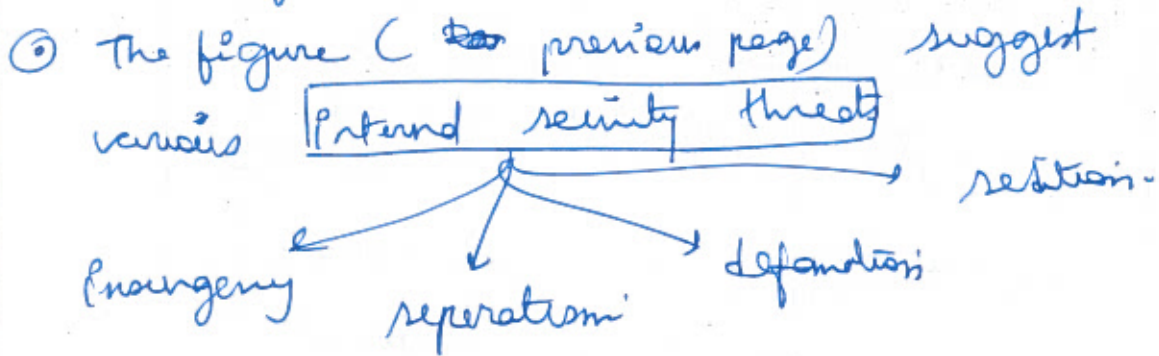 The figure ( previous page) suggest
various Internal security threats
sedition.
Insurgency seperatism defamation